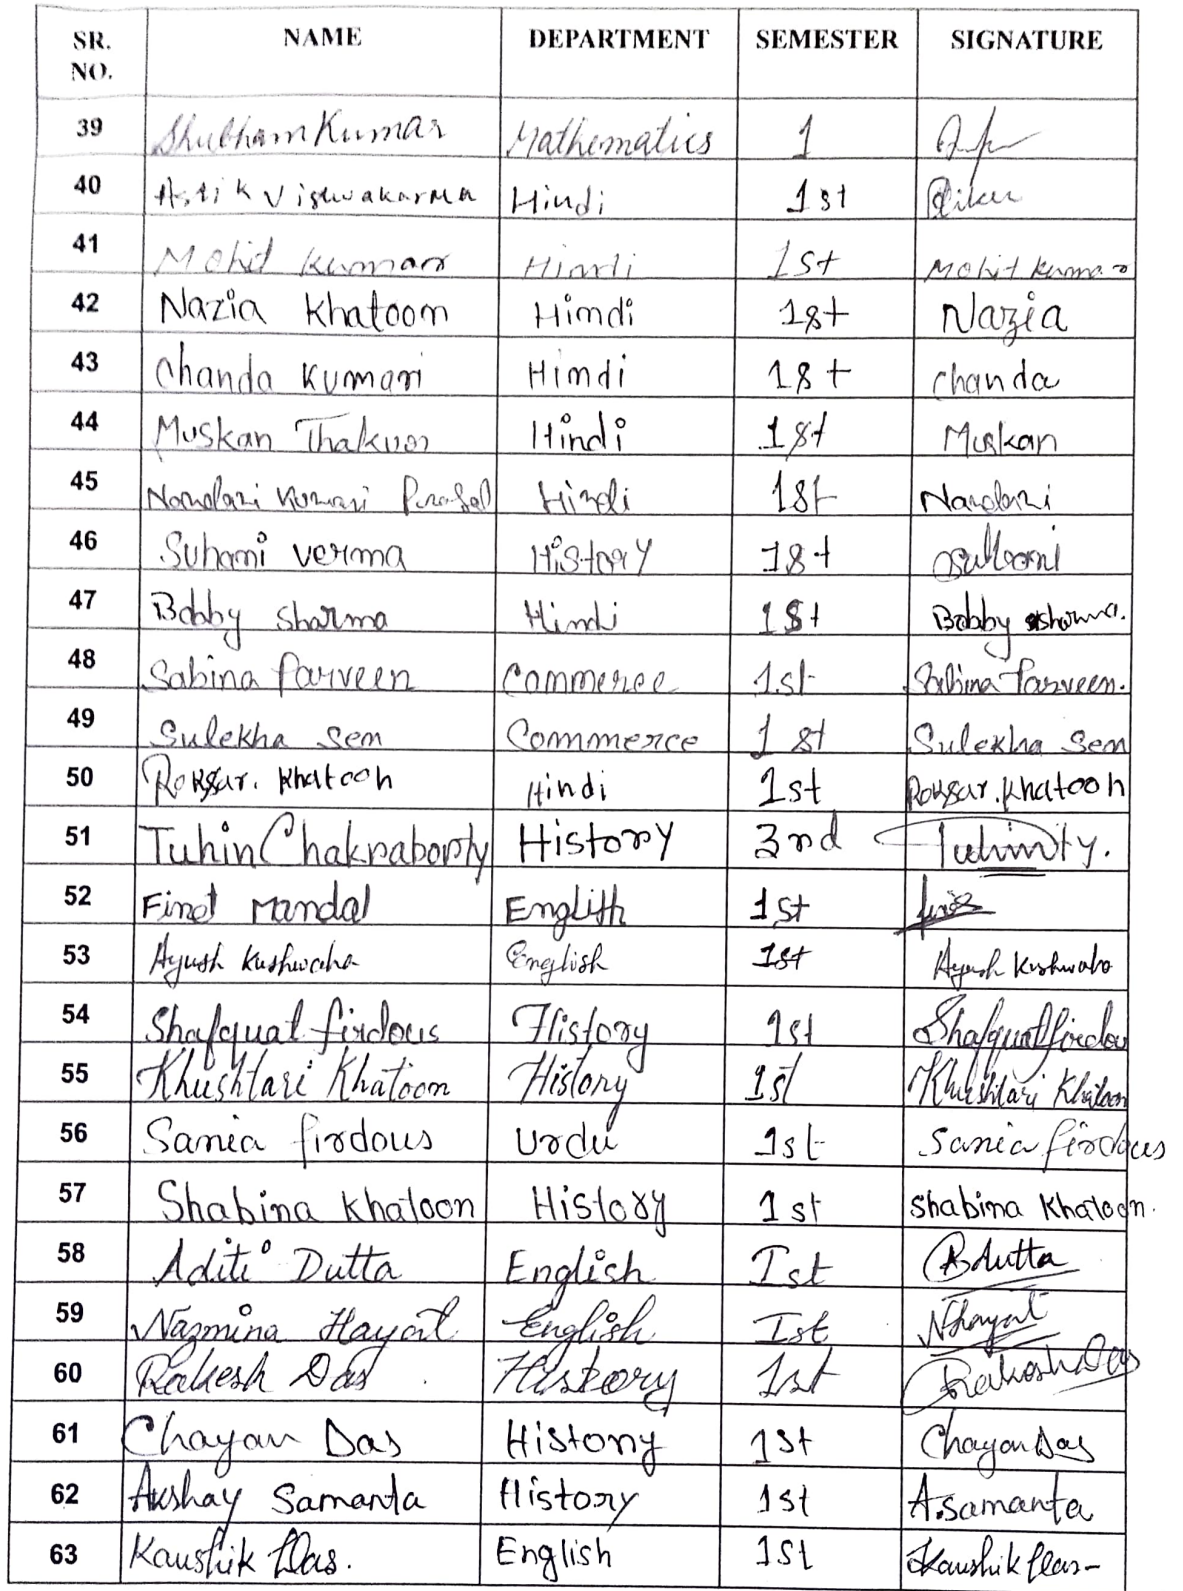 SR. NO. NAME DEPARTMENT SEMESTER SIGNATURE
39 Shubham Kumar Mathematics 1
40 Astik Vishwakarma Hindi 1st
41 Mohit Kumar Hindi 1st Mohit Kumar
42 Nazia Khatoon Hindi 1st Nazia
43 Chanda Kumari Hindi 1st chanda
44 Muskan Thakur Hindi 1st Muskan
45 Nandani Kumari Hindi 1st Nandani
46 Suhani verma History 1st Suhani
47 Bobby Sharma Hindi 1st Bobby sharma.
48 Sabina Parveen Commerce 1st Sabina Parveen.
49 Sulekha Sen Commerce 1st Sulekha Sen
50 Roksar. Khatoon Hindi 1st Roksar. Khatoon
51 Tuhin Chakraborty History 3rd
52 Mandal English 1st
53 Ayush Kushwaha English 1st Ayush Kushwaha
54 Shafqual firdous History 1st Shafqual firdou
55 Khushtari Khatoon History 1st Khushtari Khatoon
56 Sania firdous Urdu 1st Sania firdous
57 Shabina Khatoon History 1st Shabina Khatoon.
58 Aditi Dutta English Ist ADutta
59 Nazmina Hayat English Ist NHayat
60 Rakesh Das History 1st Rakesh Das
61 Chayan Das History 1st Chayan Das
62 Akshay Samanta History 1st A.Samanta
63 Kaushik Das. English 1st Kaushik Das